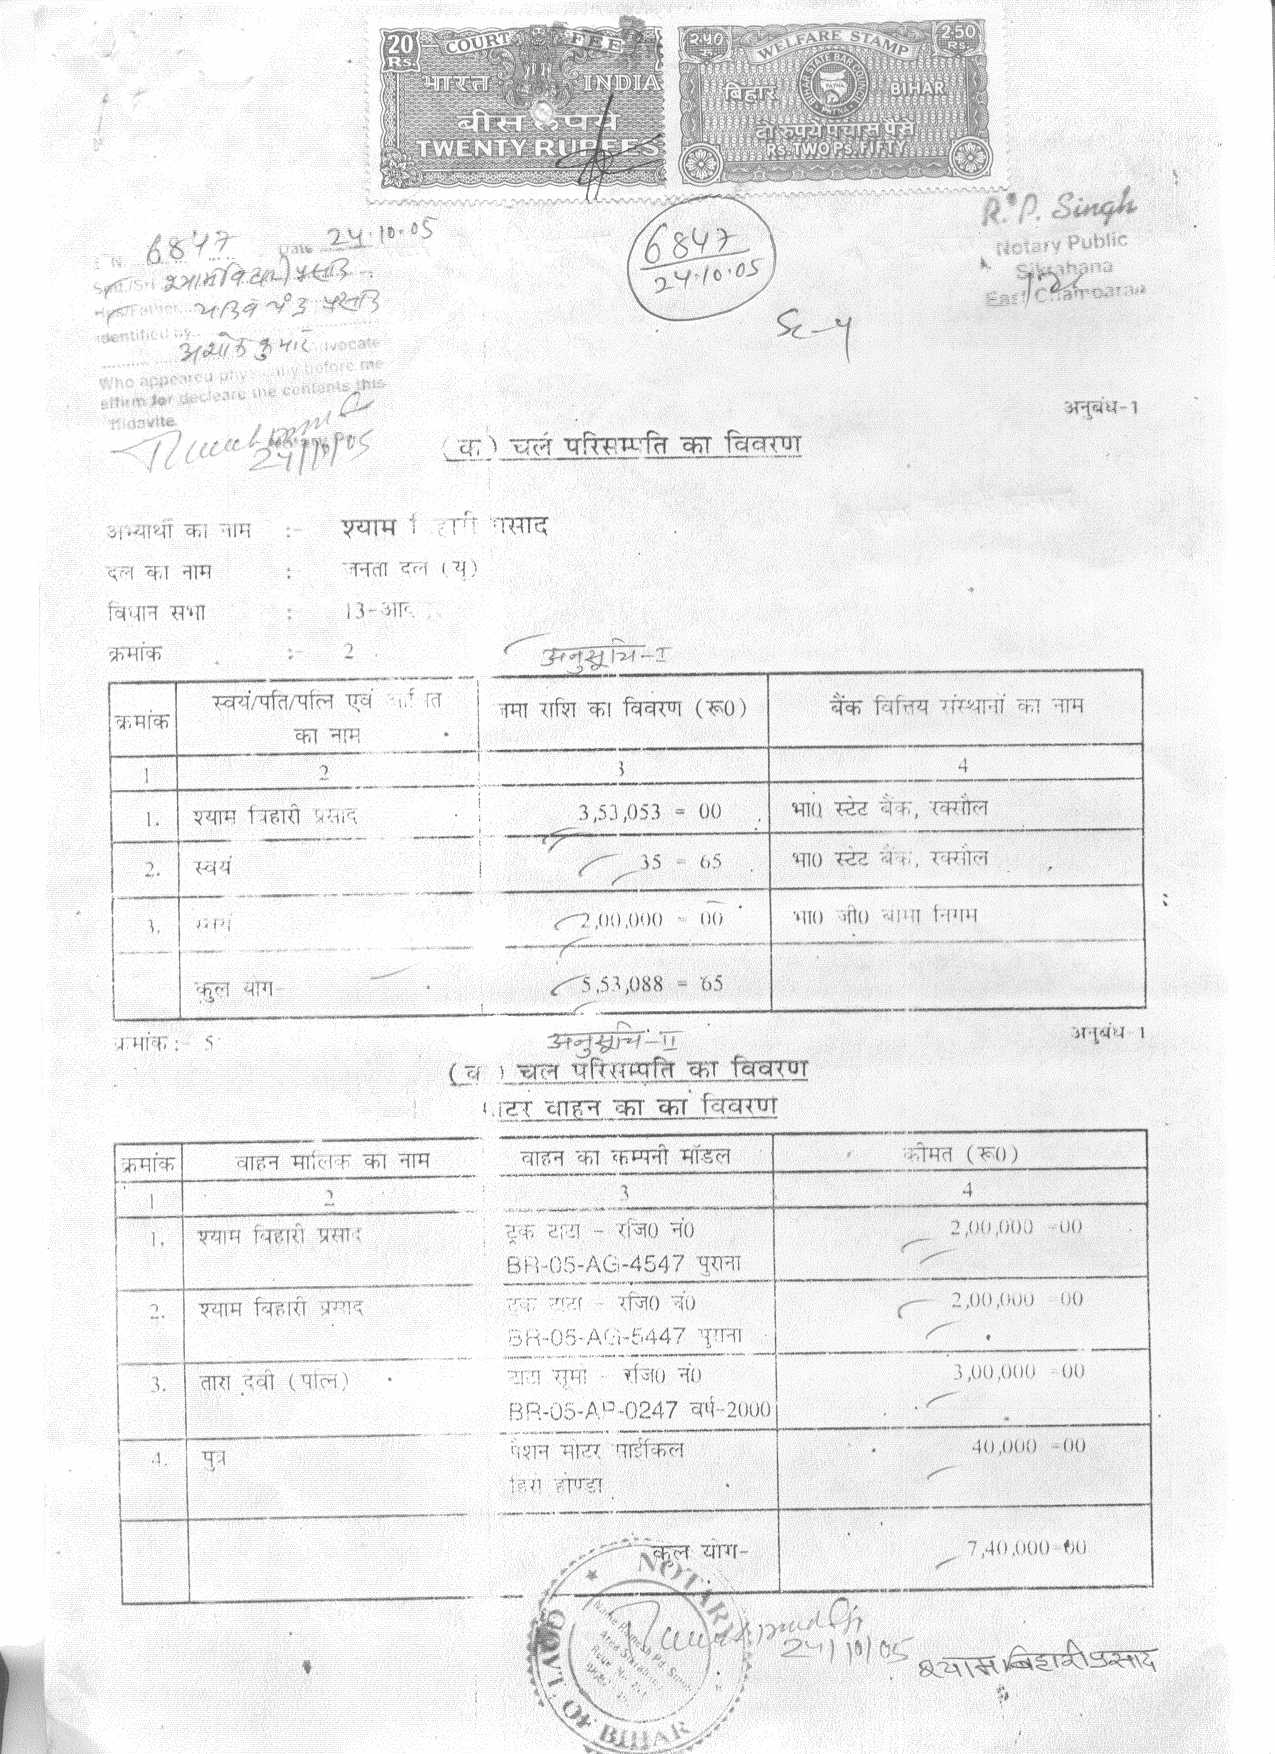 20 Rs. COURT FEE
भारत INDIA
बीस रुपये
TWENTY RUPEES
२.५० रु. WELFARE STAMP 2.50 Rs.
BIHAR STATE BAR COUNCIL
PATNA
बिहार BIHAR
दो रुपये पचास पैसे
Rs. TWO Ps. FIFTY
R.P. Singh
Notary Public
Sikrahana
East Champaran
6847 Date 24.10.05
Smt./Sri
प्रसाद
Identified by
अशोक कुमार Advocate
Who appeared physically before me
affirm for decleare the contents this
24/10/05
6847
24.10.05
अनुबंध-1
(क) चल परिसम्पति का विवरण
अभ्यार्थी का नाम :- श्याम बिहारी प्रसाद
दल का नाम : जनता दल (यू)
विधान सभा : 13-आद
क्रमांक :- 2
अनुसूचि-I
क्रमांक स्वयं/पति/पत्नि एवं आश्रित का नाम जमा राशि का विवरण (रू0) बैंक वित्तिय संस्थानों का नाम
1 2 3 4
1. श्याम बिहारी प्रसाद 3,53,053 = 00 भा0 स्टेट बैंक, रक्सौल
2. स्वयं 35 = 65 भा0 स्टेट बैंक, रक्सौल
3. स्वयं 2,00,000 = 00 भा0 जी0 बीमा निगम
कुल योग- 5,53,088 = 65
क्रमांक :- 5 अनुसूचि-II अनुबंध-1
(ख) चल परिसम्पति का विवरण
मोटर वाहन का का विवरण
क्रमांक वाहन मालिक का नाम वाहन का कम्पनी मॉडल कीमत (रू0)
1 2 3 4
1. श्याम बिहारी प्रसाद ट्रक टाटा - रजि0 नं0 2,00,000 =00
BR-05-AG-4547 पुराना
2. श्याम बिहारी प्रसाद ट्रक टाटा - रजि0 नं0 2,00,000 =00
BR-05-AG-5447 पुराना
3. तारा देवी (पत्नि) टाटा सूमो - रजि0 नं0 3,00,000 =00
BR-05-AP-0247 वर्ष-2000
4. पुत्र पैशन मोटर साईकिल 40,000 =00
हिरो होण्डा
कुल योग- 7,40,000=00
NOTARY
GOVT. OF BIHAR
24/10/05
श्याम बिहारी प्रसाद